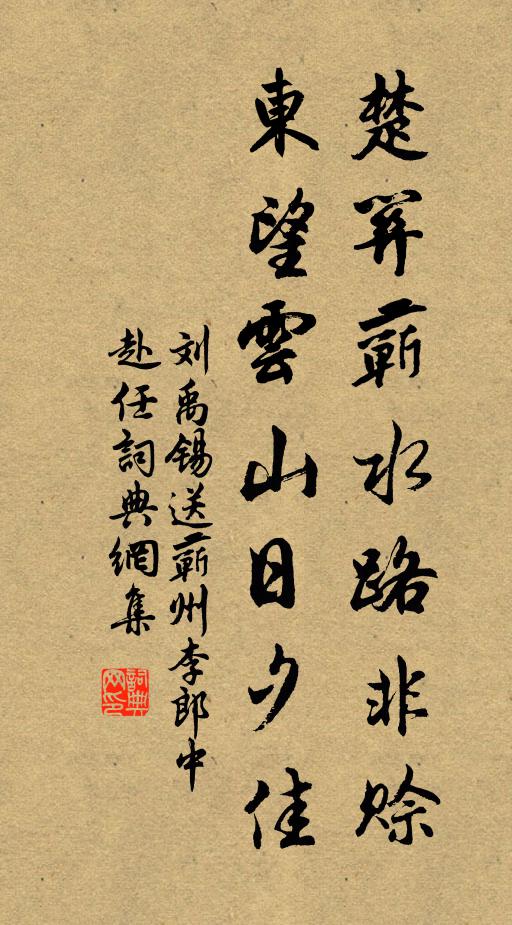 楚関蘄水路非賒
東望雲山日夕佳
刘禹锡送蘄州李郎中
赴任詞典網集
詞典
网印